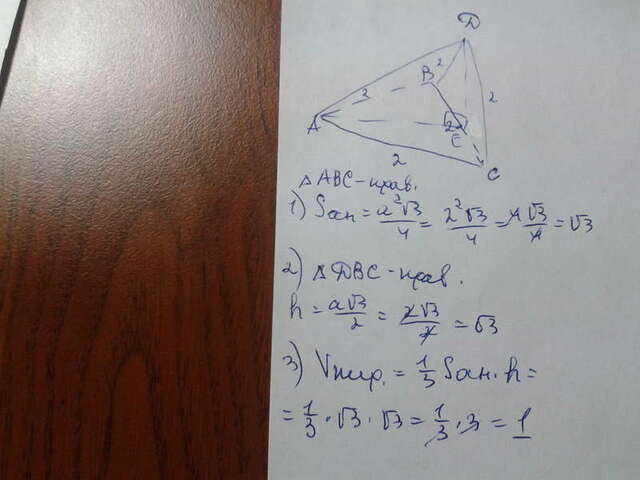 D
B 2
3 2
A 2 E
2 C
△ABC - прав.
1) Sосн = a²√3/4 = 2²√3/4 = 4√3/4 = √3
2) △DBC - прав.
h = a√3/2 = 2√3/2 = √3
3) Vпир. = 1/3 Sосн · h =
= 1/3 · √3 · √3 = 1/3 · 3 = 1